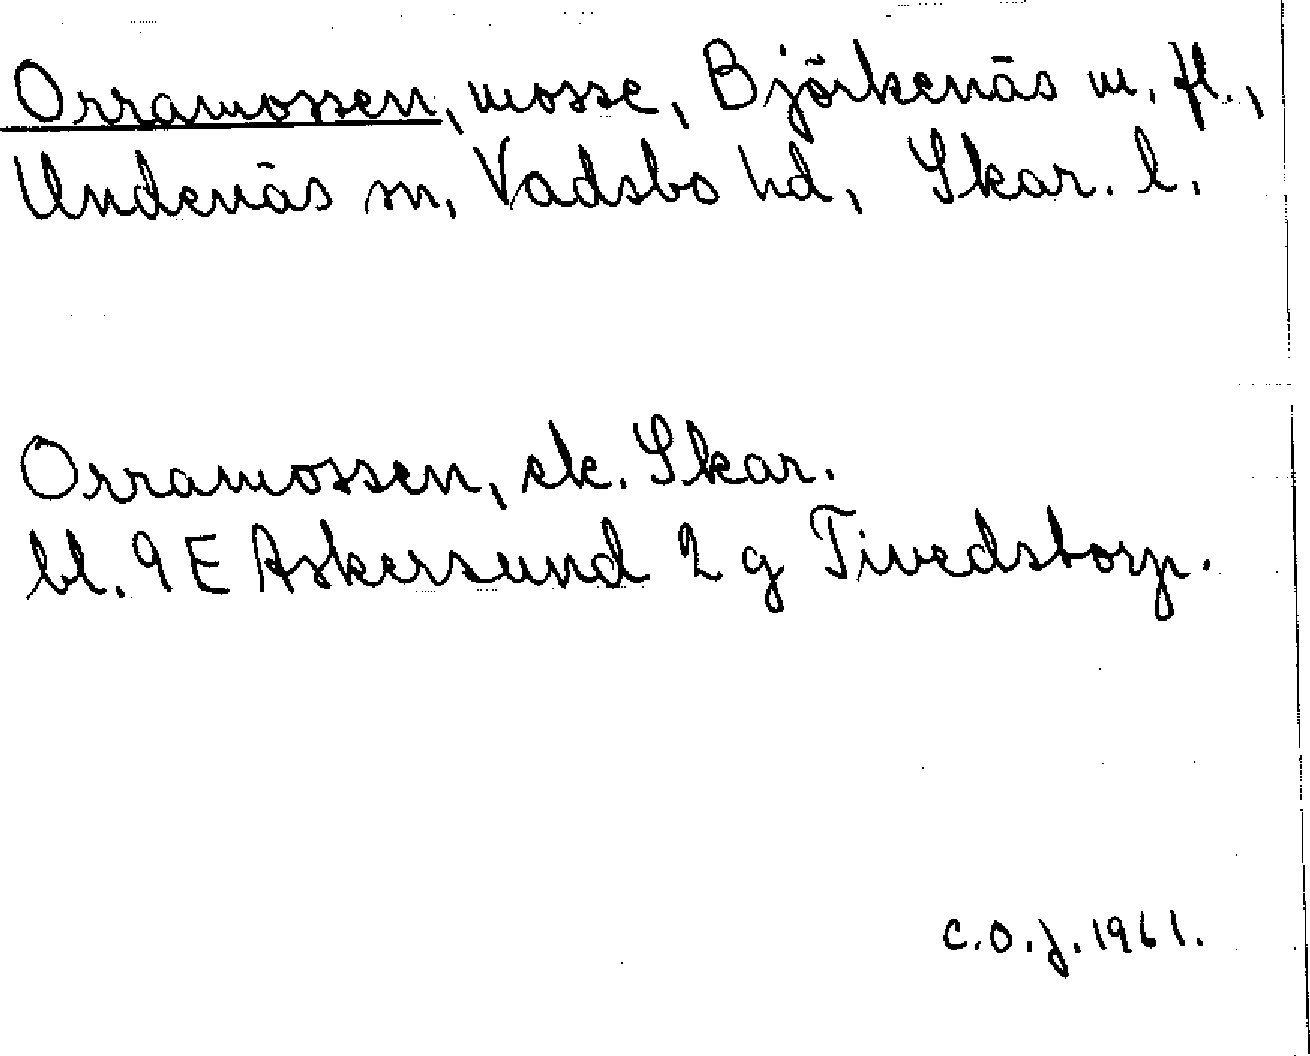 Orramossen, mosse, Björkenäs m. fl.,
Undenäs sn, Vadsbo hd, Skar. l.
Orramossen, ek. Skar.
bl. 9E Askersund 2 g Tivedstorp.
C.O.J. 1961.